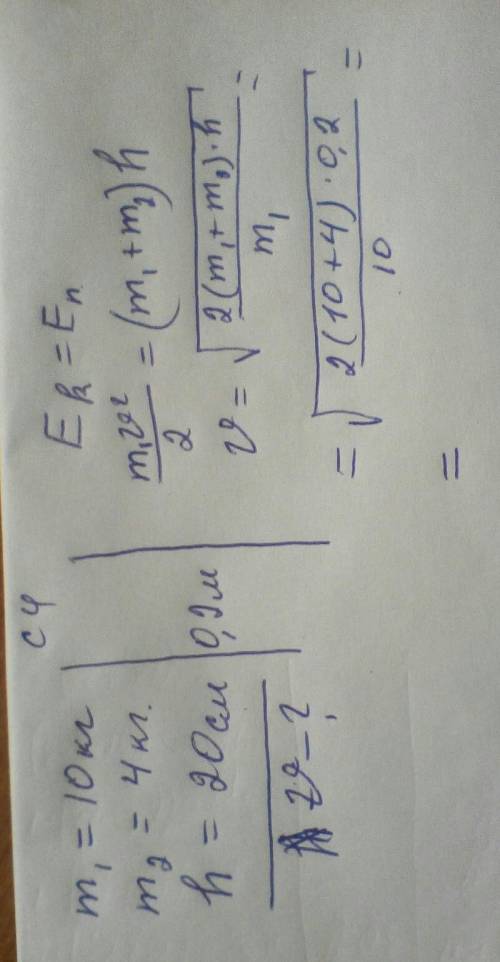 СИ
m₁ = 10кг
m₂ = 4 кг.
h = 20см | 0,2м
v – ?
E k = E п
m₁v²/2 = (m₁ + m₂) h
v = √(2(m₁ + m₂)·h / m₁) =
= √(2(10+4)·0,2 / 10) =
=